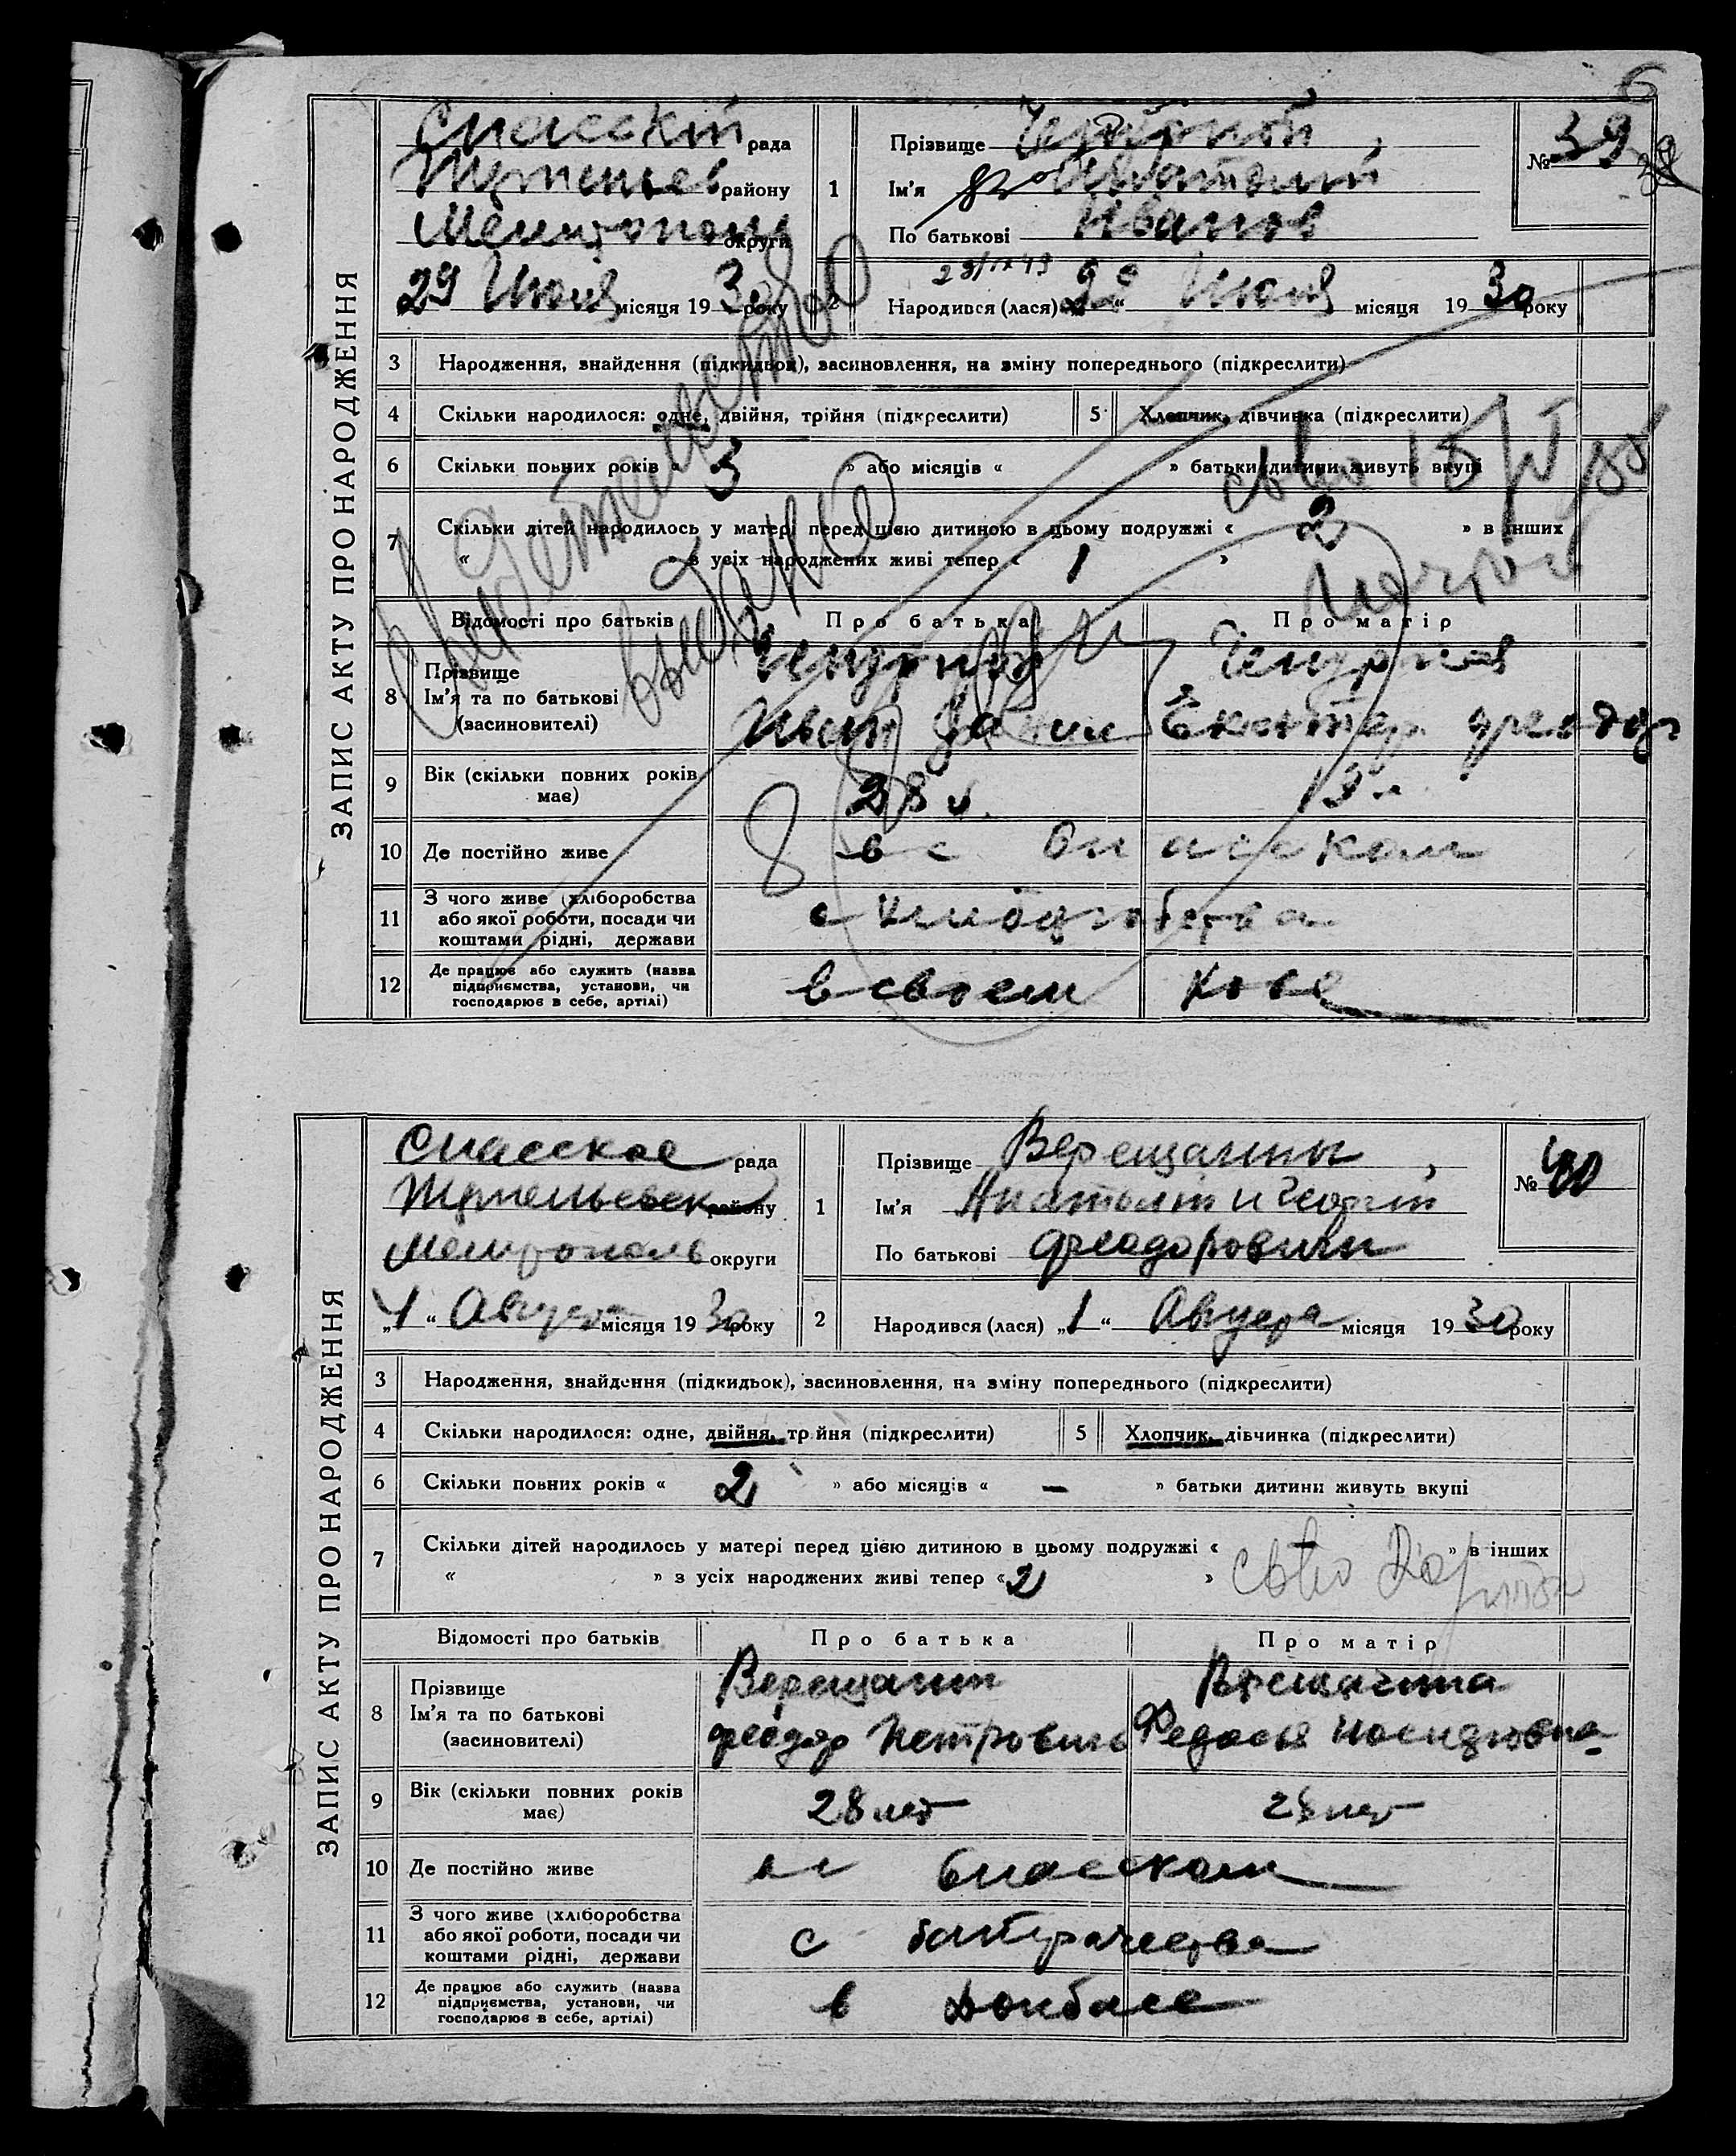 6
ЗАПИС АКТУ ПРО НАРОДЖЕННЯ
рада
району
округи
29 Июля місяця 1930 року
1
Прізвище
Ім'я
По батькові Иванов
№ 39
2
Народився (лася) 22 " Июля місяця 1930 року
3 Народження, знайдення (підкидьок), засиновлення, на зміну попереднього (підкреслити)
4 Скільки народилося: одне, двійня, трійня (підкреслити)
5 Хлопчик, дівчинка (підкреслити)
6 Скільки повних років « 3 » або місяців « » батьки дитини живуть вкупі
7 Скільки дітей народилось у матері перед цією дитиною в цьому подружжі « 2 » в інших
« » з усіх народжених живі тепер « 1 »
Свидетельство
выдано
Відомості про батьків Про батька Про матір
8 Прізвище
Ім'я та по батькові
(засиновителі)
9 Вік (скільки повних років
має)
28 л. 19 л.
10 Де постійно живе
в с Спасском
11 З чого живе (хліборобства
або якої роботи, посади чи
коштами рідні, держави
с хлеборобства
12 Де працює або служить (назва
підприємства, установи, чи
господарює в себе, артілі)
в своем хозе
ЗАПИС АКТУ ПРО НАРОДЖЕННЯ
Спасское рада
району
Мелитополь округи
„1 “ Август місяця 1930 року
1
Прізвище Верещагины,
Ім'я Анатолій и Георгій
По батькові Феодоровичи
№ 40
2
Народився (лася) „1 “ Августа місяця 1930 року
3 Народження, знайдення (підкидьок), засиновлення, на зміну попереднього (підкреслити)
4 Скільки народилося: одне, двійня, трійня (підкреслити)
5 Хлопчик, дівчинка (підкреслити)
6 Скільки повних років « 2 » або місяців « – » батьки дитини живуть вкупі
7 Скільки дітей народилось у матері перед цією дитиною в цьому подружжі « – » в інших
« » з усіх народжених живі тепер « 2 »
Відомості про батьків Про батька Про матір
8 Прізвище
Ім'я та по батькові
(засиновителі)
Верещагин Верещагина
Феодор Петрович Федосья
9 Вік (скільки повних років
має)
28 лет лет
10 Де постійно живе
в с Спасском
11 З чого живе (хліборобства
або якої роботи, посади чи
коштами рідні, держави
с батрачества
12 Де працює або служить (назва
підприємства, установи, чи
господарює в себе, артілі)
в Донбасе